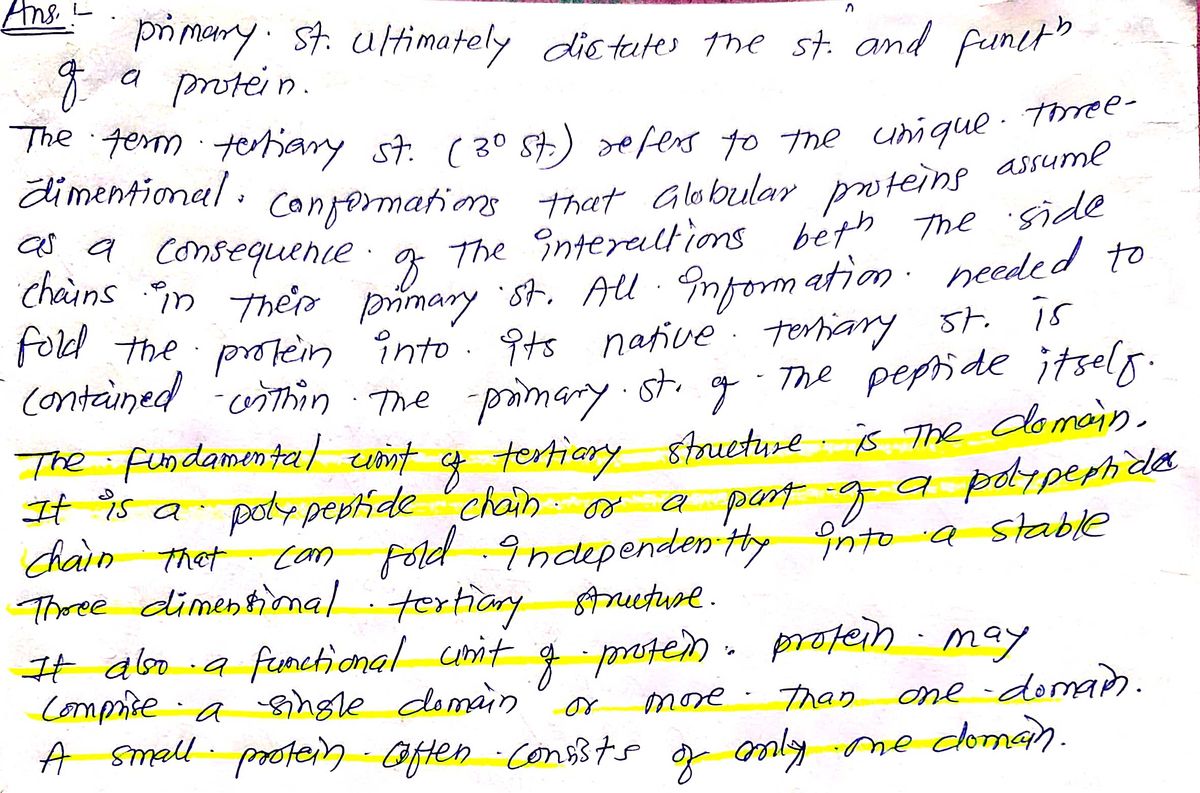 Ans:-
primary. st. ultimately dictates the st. and functn
of a protein.
The term tertiary st. (3° st.) refers to the unique three-
dimentional. conformations that globular proteins assume
as a consequence of the interactions betn the side
chains in their primary st. All information needed to
fold the protein into its native tertiary st. is
contained within the primary st. of the peptide itself.
The fundamental unit of tertiary structure is the domain.
It is a polypeptide chain or a part of a polypeptide
chain that can fold independently into a stable
Three dimensional tertiary structure.
It also a functional unit of protein. protein may
comprise a single domain or more than one domain.
A small protein often consists of only one domain.